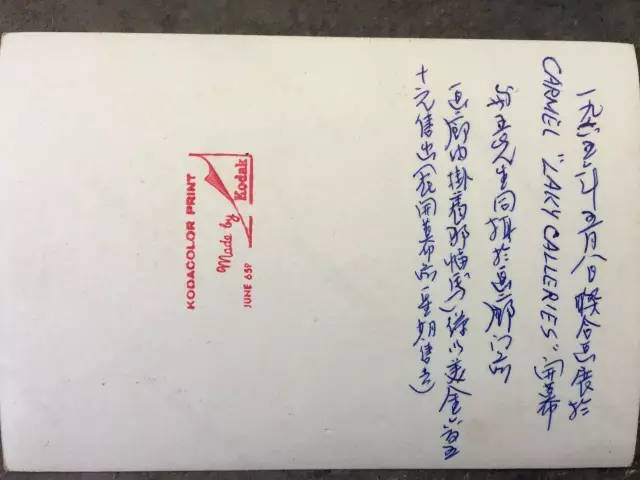 一九六五年五月八日联合画展於
CARMEL "LAKY GALLERIES" 開幕
先生同攝於画廊门前
画廊内掛着那幅馬)係以美金六百五
十元售出(在開幕前一星期售去)
KODACOLOR PRINT
Made by Kodak
JUNE 65P